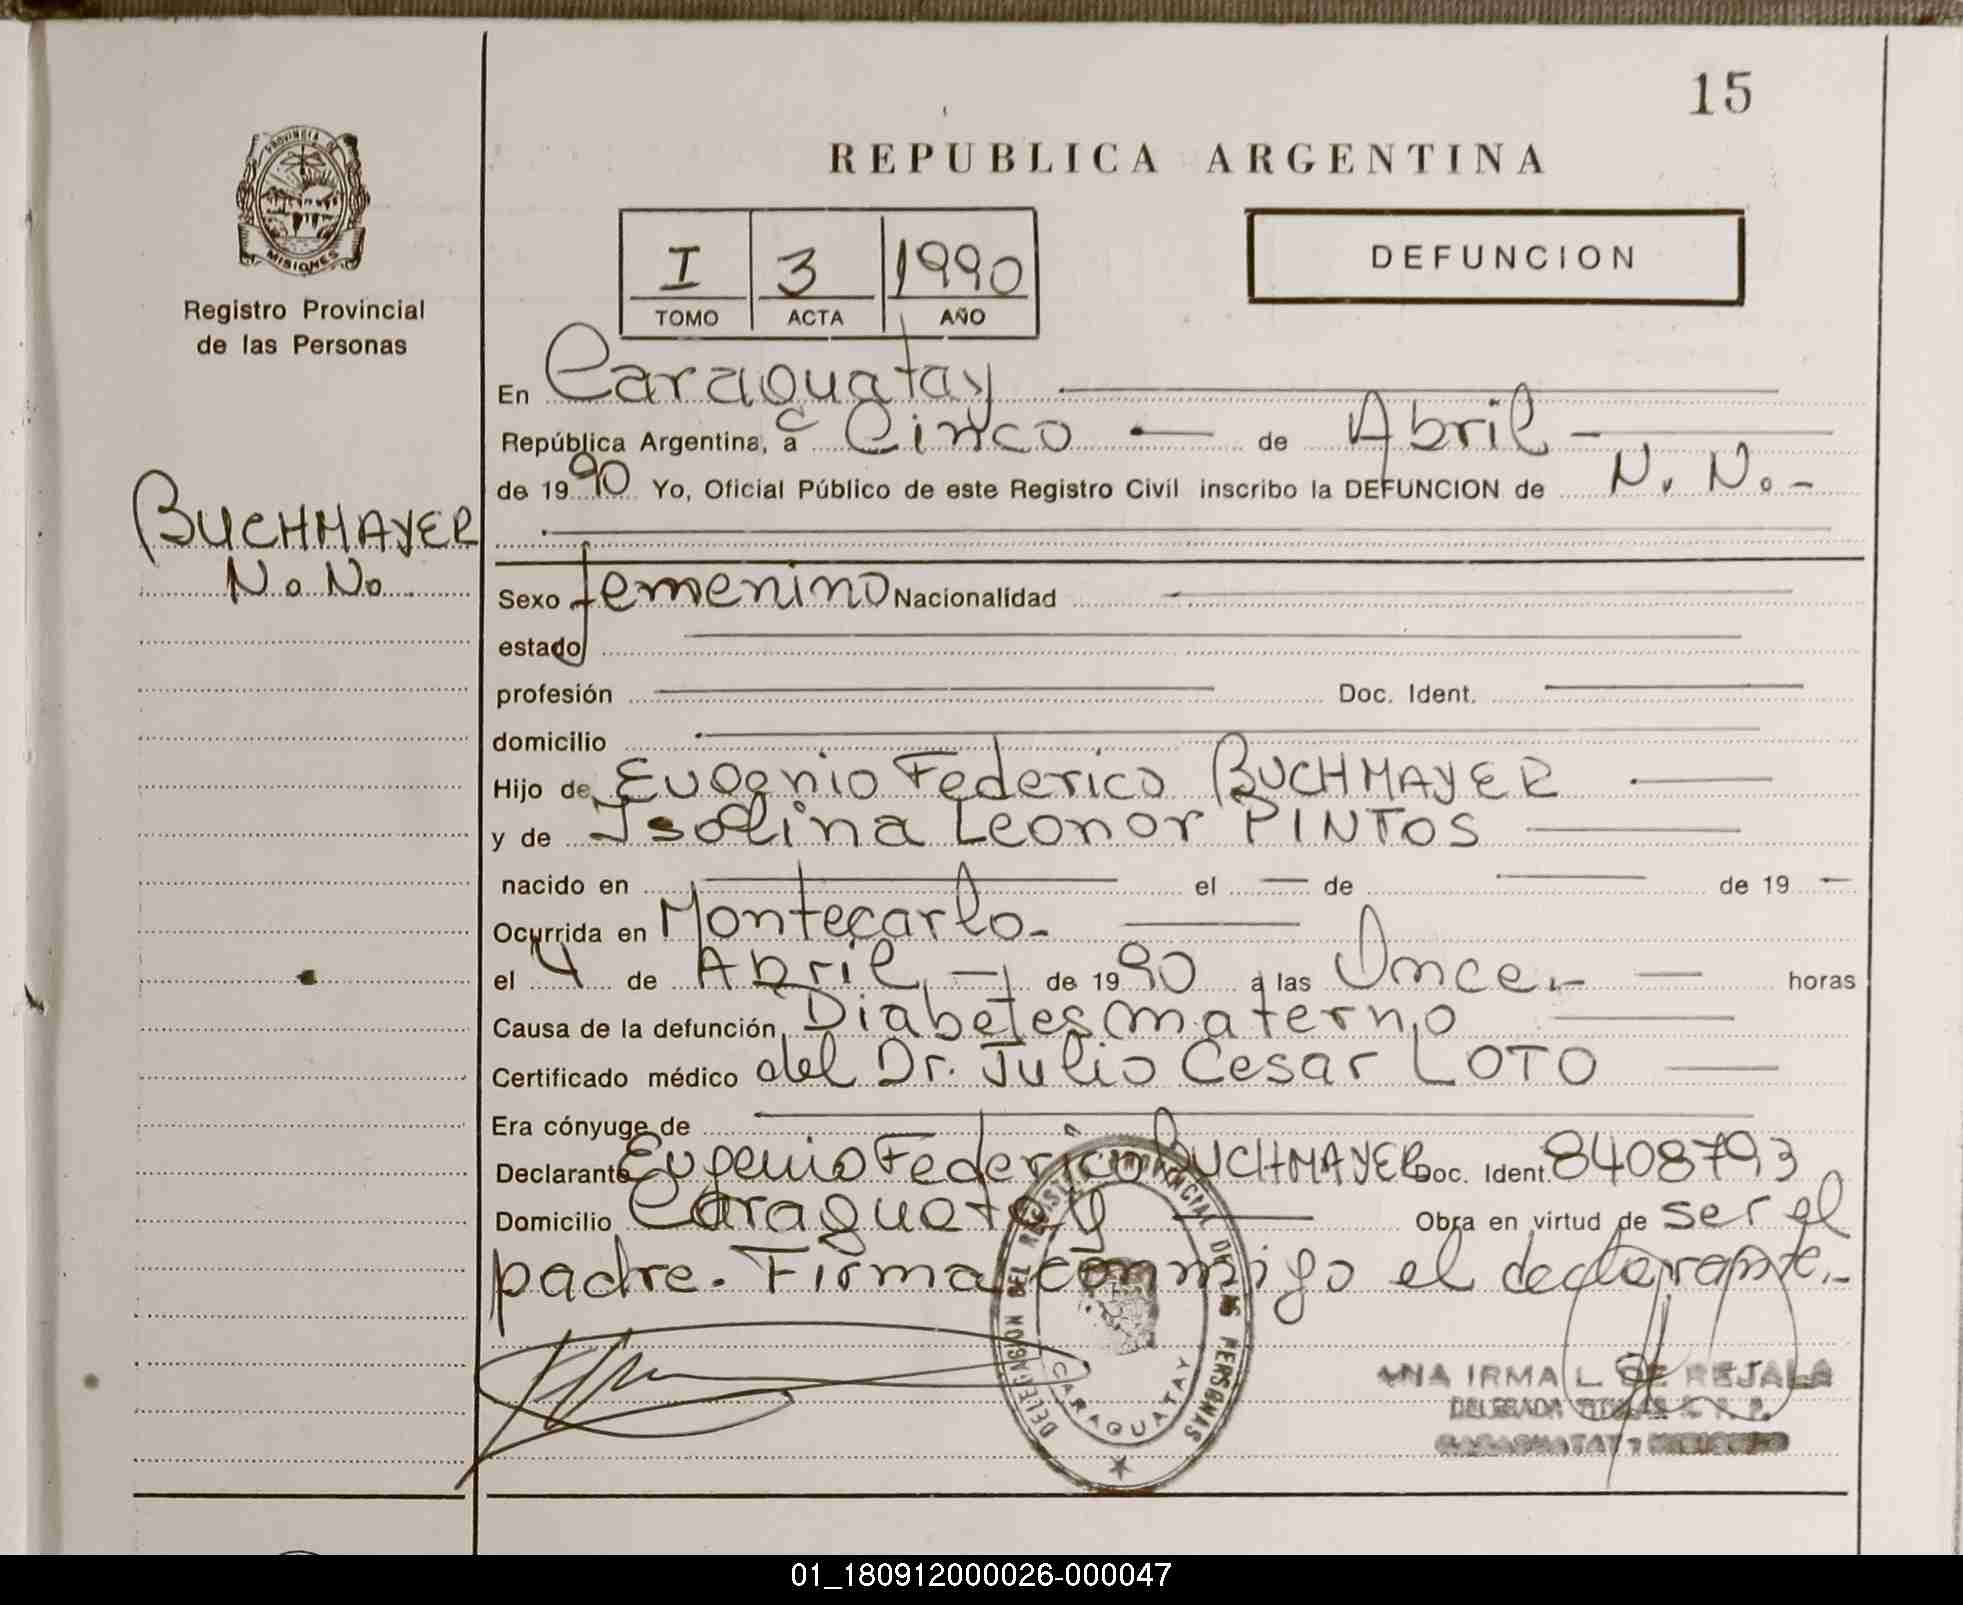 15
REPUBLICA ARGENTINA
PROVINCIA DE
MISIONES
Registro Provincial
de las Personas
I 3 1990
TOMO ACTA AÑO
DEFUNCION
En Caraguatay
República Argentina, a Cinco de Abril
de 1990 Yo, Oficial Público de este Registro Civil inscribo la DEFUNCION de N. N.-
BUCHMAYER
N. N.
Sexo femenino Nacionalidad
estado
profesión Doc. Ident.
domicilio
Hijo de Eugenio Federico BUCHMAYER
y de Isolina Leonor PINTOS
nacido en el de de 19
Ocurrida en Montecarlo.-
el 4 de Abril de 1990 a las Once.- horas
Causa de la defunción Diabetes materno
Certificado médico del Dr. Julio Cesar LOTO
Era cónyuge de
Declarante Eugenio Federico BUCHMAYER Doc. Ident. 8408793
Domicilio Caraguatay Obra en virtud de ser el
padre. Firma conmigo el declarante.-
DELEGASION DEL REGISTRO PROVINCIAL DE LAS PERSONAS
CARAGUATAY
ANA IRMA L. DE REJALA
DELEGADA TITULAR R. P. P.
CARAGUATAY - MISIONES
01_180912000026-000047